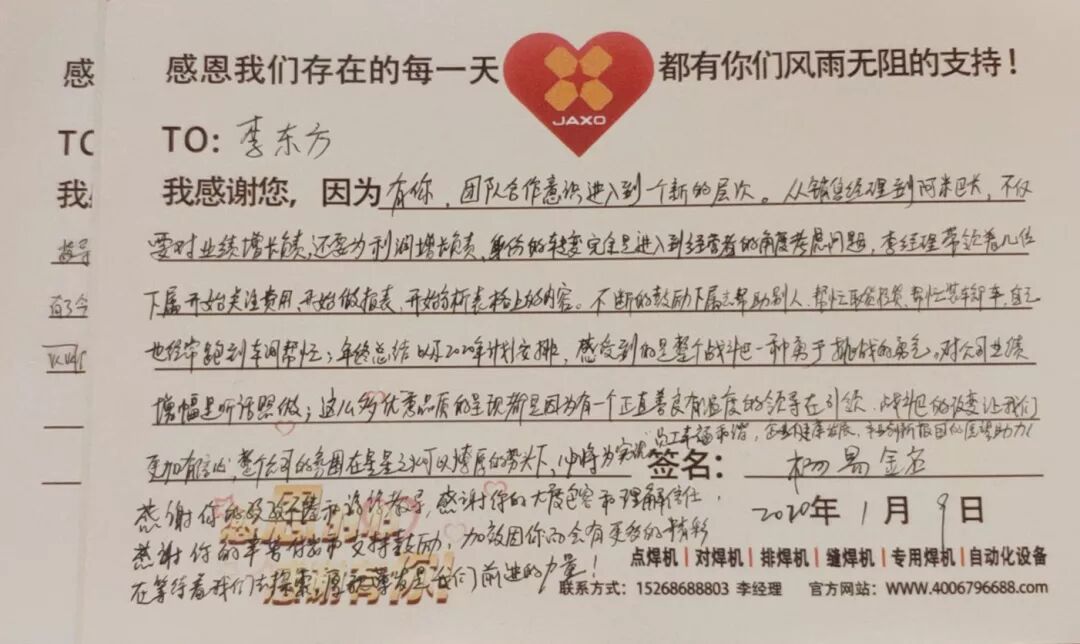 感恩我们存在的每一天 JAXO 都有你们风雨无阻的支持！
TO：李东方
我感谢您，因为有你，团队合作意识进入到一个新的层次。从销售经理到阿米巴长，不仅
要对业绩增长负责，还要为利润增长负责，身份的转变完全是进入到经营者的角度考虑问题，李经理带领着几位
下属开始关注费用、开始做报表、开始分析表格上的内容。不断的鼓励下属去帮助别人，帮忙取货投货，帮忙装车卸车，自己
也经常跑到车间帮忙；年终总结以及2020年计划安排，感受到的是整个战斗巴一种勇于挑战的勇气。对公司业绩
增幅是听话照做；这么多优秀品质的呈现都是因为有一个正直善良有温度的领导在引领，战斗巴的改变让我们
更加有信心，整个公司的氛围在星星之火可以燎原的势头下，必将为实现员工幸福和谐，企业健康发展，
签名：杨易金名
感谢你的 和谆谆教导，感谢你的大度包容和理解信任，
2020年1月9日
感谢你的辛苦付出和支持鼓励；加兹因你而会有更多的精彩
在等待着我们去探索，厚积薄发是我们前进的力量！
点焊机 | 对焊机 | 排焊机 | 缝焊机 | 专用焊机 | 自动化设备
联系方式：15268688803 李经理 官方网站：WWW.4006796688.com
感
TO
我